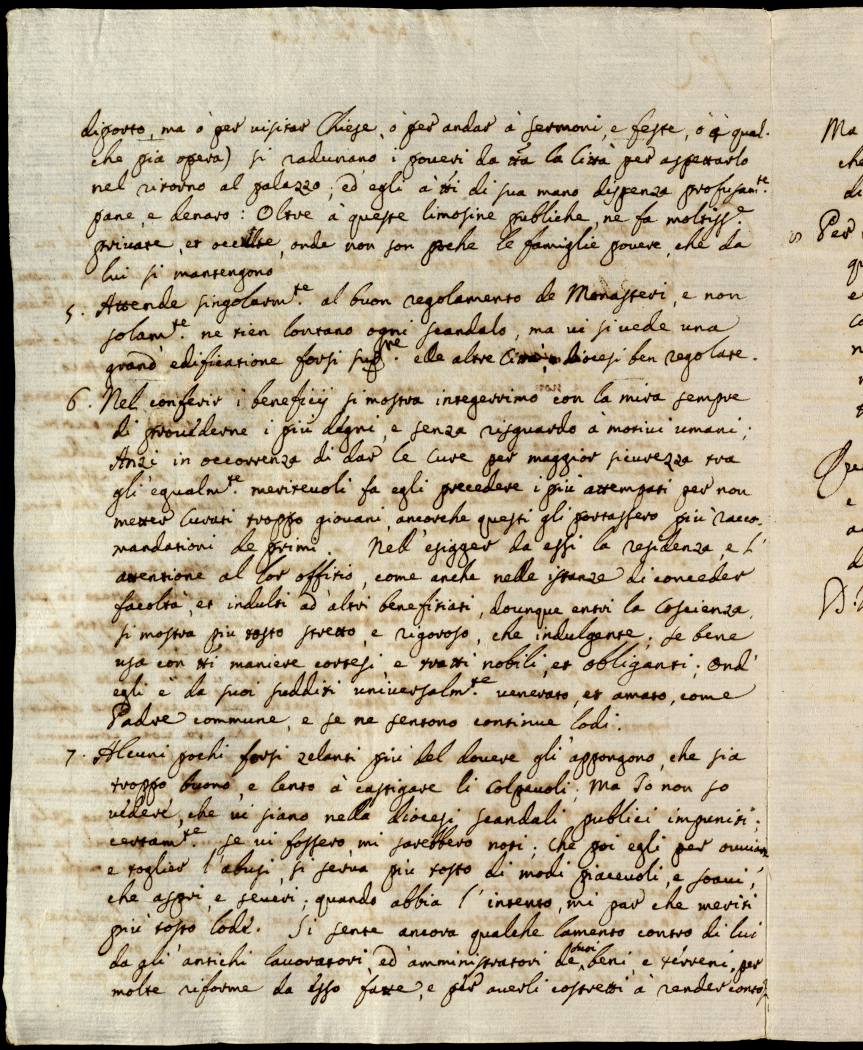 diporto, ma ò per visitar Chiese, ò per andar à sermoni, e feste, ò p qual-
che pia opera) si radunano i poveri da tta la Città per aspettarlo
nel ritorno al palazzo; ed egli à tti di sua mano dispenza profusam.te
pane, e denaro: Oltre à queste limosine publiche, ne fa moltiss.e
private, et occulte, onde non son poche le famiglie povere, che da
lui si mantengono
5. Attende singolarm.te al buon regolamento de Monasteri, e non
solam.te ne tien lontano ogni scandalo, ma vi si vede una
grand' edificatione forsi alle altre diocesi ben regolate.
6. Nel conferir i beneficij si mostra integerrimo con la mira sempre
di provederne i più degni, e senza risguardo à motivi umani;
Anzi in occorrenza di dar le Cure per maggior sicurezza tra
gli egualm.te meritevoli fa egli precedere i più attempati per non
metter Curati troppo giovani, ancorche questi gli portassero più racco-
mandationi de primi. Nell' esigger da essi la residenza, e l'
attentione al lor offitio, come anche nelle istanze di conceder
facoltà, et indulti ad altri benefitiati, dounque entri la Coscienza,
si mostra più tosto stretto, e rigoroso, che indulgente; se bene
usa con tti maniere cortesi, e tratti nobili, et obliganti; Ond'
egli è da suoi sudditi universalm.te venerato, et amato, come
Padre commune, e se ne sentono continue lodi.
7. Alcuni pochi forsi zelanti più del dovere gli appongono, che sia
troppo buono, e lento à castigare li Colpevoli; Ma Io non so
vedere, che vi siano nella diocesi scandali publici impuniti;
certam.te se vi fossero, mi sarebbero noti; Che poi egli per ovviar
e toglier l'abusi, si serva più tosto di modi piacevoli, e soavi,
che aspri, e severi; quando abbia l'intento, mi par che meriti
più tosto lode. Si sente ancora qualche lamento contro di lui
da gli antichi lavoratori, ed amministratori de suoi beni, e terreni, per
molte riforme da esso fatte, e per averli costretti à render conto
Ma
che
di
8 Per
qu
e
co
n
e
a
d